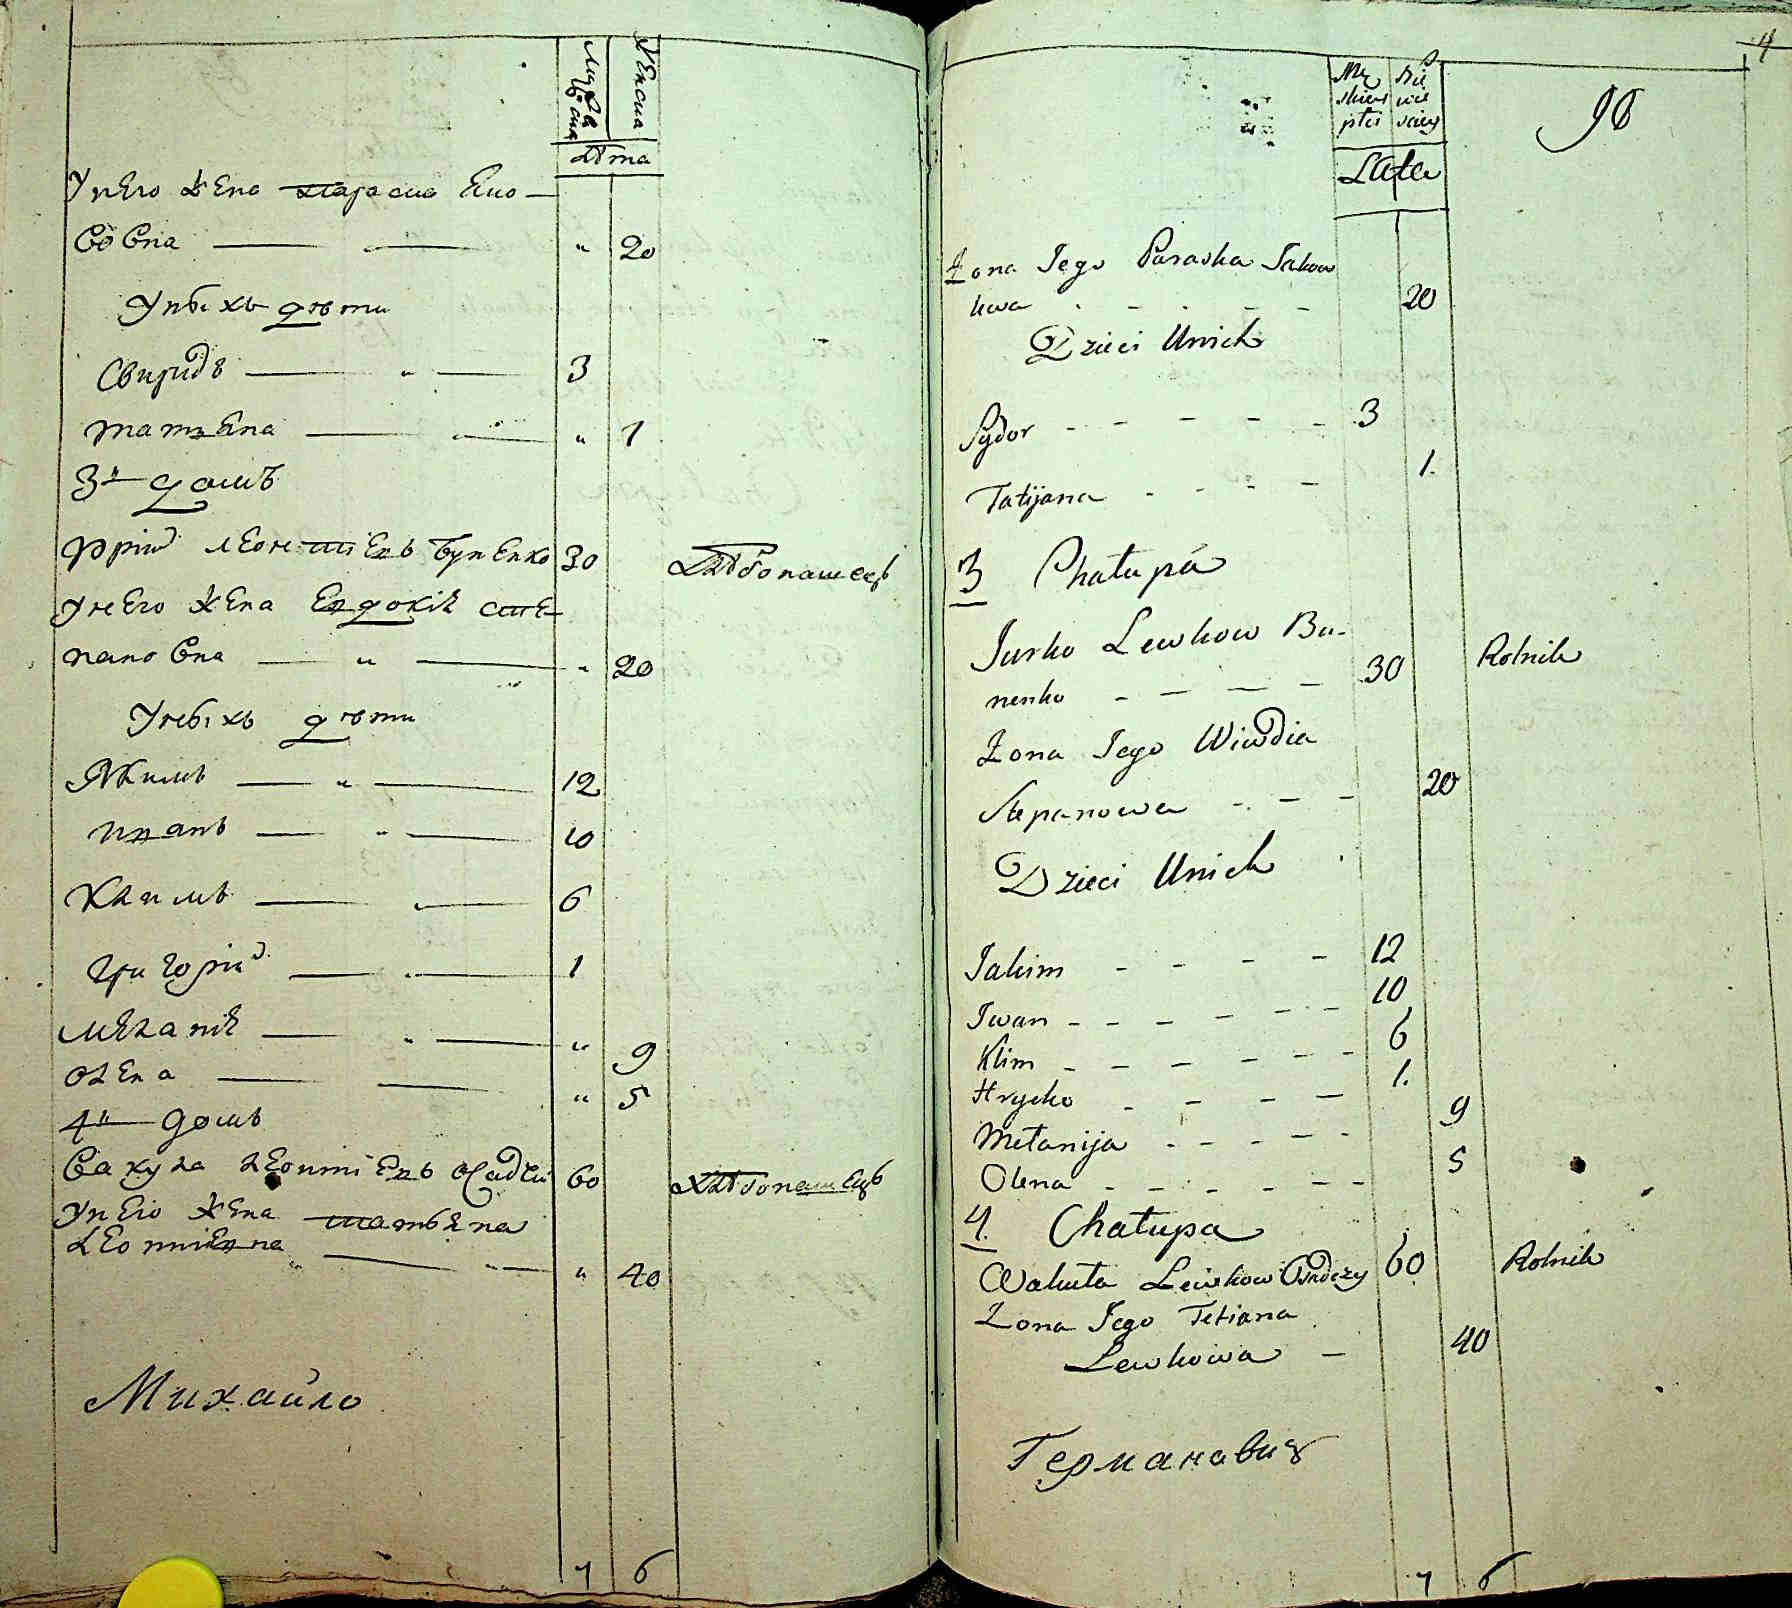 Мужеска
Женска
Лѣта
У него жена Параска Яко-
вовна — " — " 20
У нихъ дѣти
Свиридъ — " — 3
татҍяна — " 1
3й домъ
Юрій Леонтіевъ Буненко 30 Хлѣбопашецъ
У него жена Евдокія Сте-
пановна — " — " 20
У нихъ дѣти
Якимъ — " — 12
Иванъ — " — 10
Климъ — " — 6
Григорій — " — 1
Меланія — " — " 9
Олена — " 5
4й домъ
Вакула Леонтіевъ Осадчій 60 Хлѣбопашецъ
У него жена татьяна
Леонтіевна — " 40
Михайло
7 6
4
Mę skiey płci Nie wie sciey
96
Lata
Żona Jego Paraska Jakow
kwa - - - - 20
Dzieci Unich
Sydor - - - - - 3
Tatijana - - - - 1.
3 Chałupa
Jurko Lewkow Bu-
nenko - - - - 30 Rolnik
Żona Jego Wiwdia
Stepanowa - - - 20
Dzieci Unich
Jakim - - - - 12
Iwan - - - - - - 10
Klim - - - - - - 6
Hrycko - - - - 1.
Mełanija - - - - - 9
Olena - - - - - - 5
4. Chałupa
Wakuła Lewkow Osadczy 60 Rolnik
Żona Jego Tetiana
Lewkowa - 40
Германавич
7 6